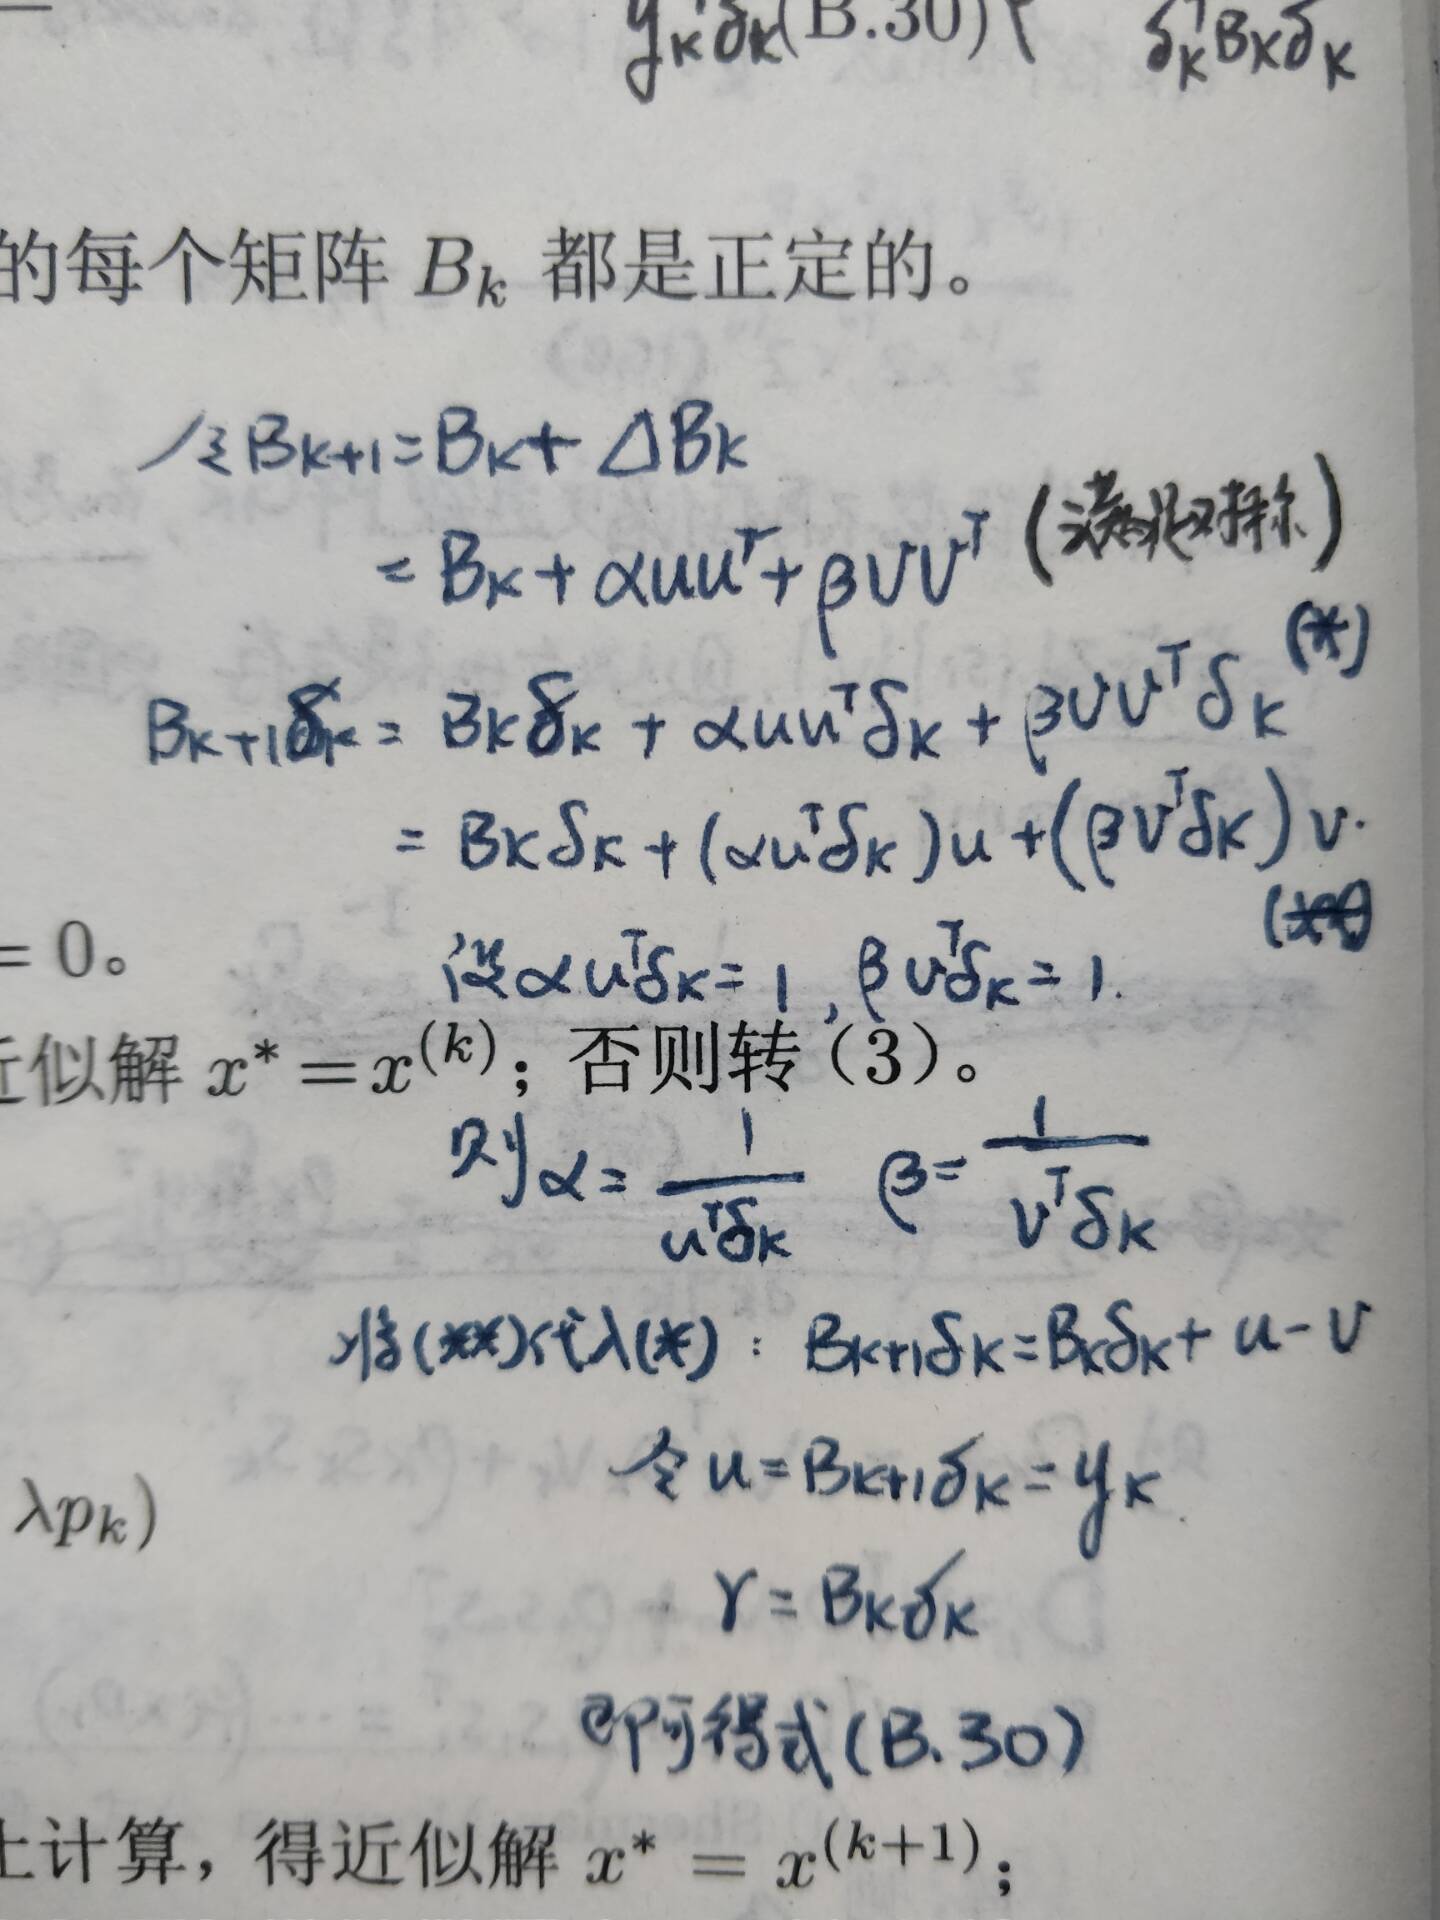 yₖᵀδₖ(B.30) δₖᵀBₖδₖ
的每个矩阵 Bₖ 都是正定的。
令Bₖ₊₁=Bₖ+ΔBₖ
=Bₖ+αuuᵀ+βvvᵀ (满足对称)
(*)
Bₖ₊₁δₖ=Bₖδₖ+αuuᵀδₖ+βvvᵀδₖ
=Bₖδₖ+(αuᵀδₖ)u+(βvᵀδₖ)v.
(**)
=0。
设αuᵀδₖ=1,βvᵀδₖ=1.
近似解 x*=x⁽ᵏ⁾；否则转（3）。
则α=1/(uᵀδₖ) β=1/(vᵀδₖ)
将(**)代入(*):Bₖ₊₁δₖ=Bₖδₖ+u-v
令u=Bₖ₊₁δₖ=yₖ
λpₖ)
v=Bₖδₖ
即可得式(B.30)
止计算，得近似解 x* = x⁽ᵏ⁺¹⁾；